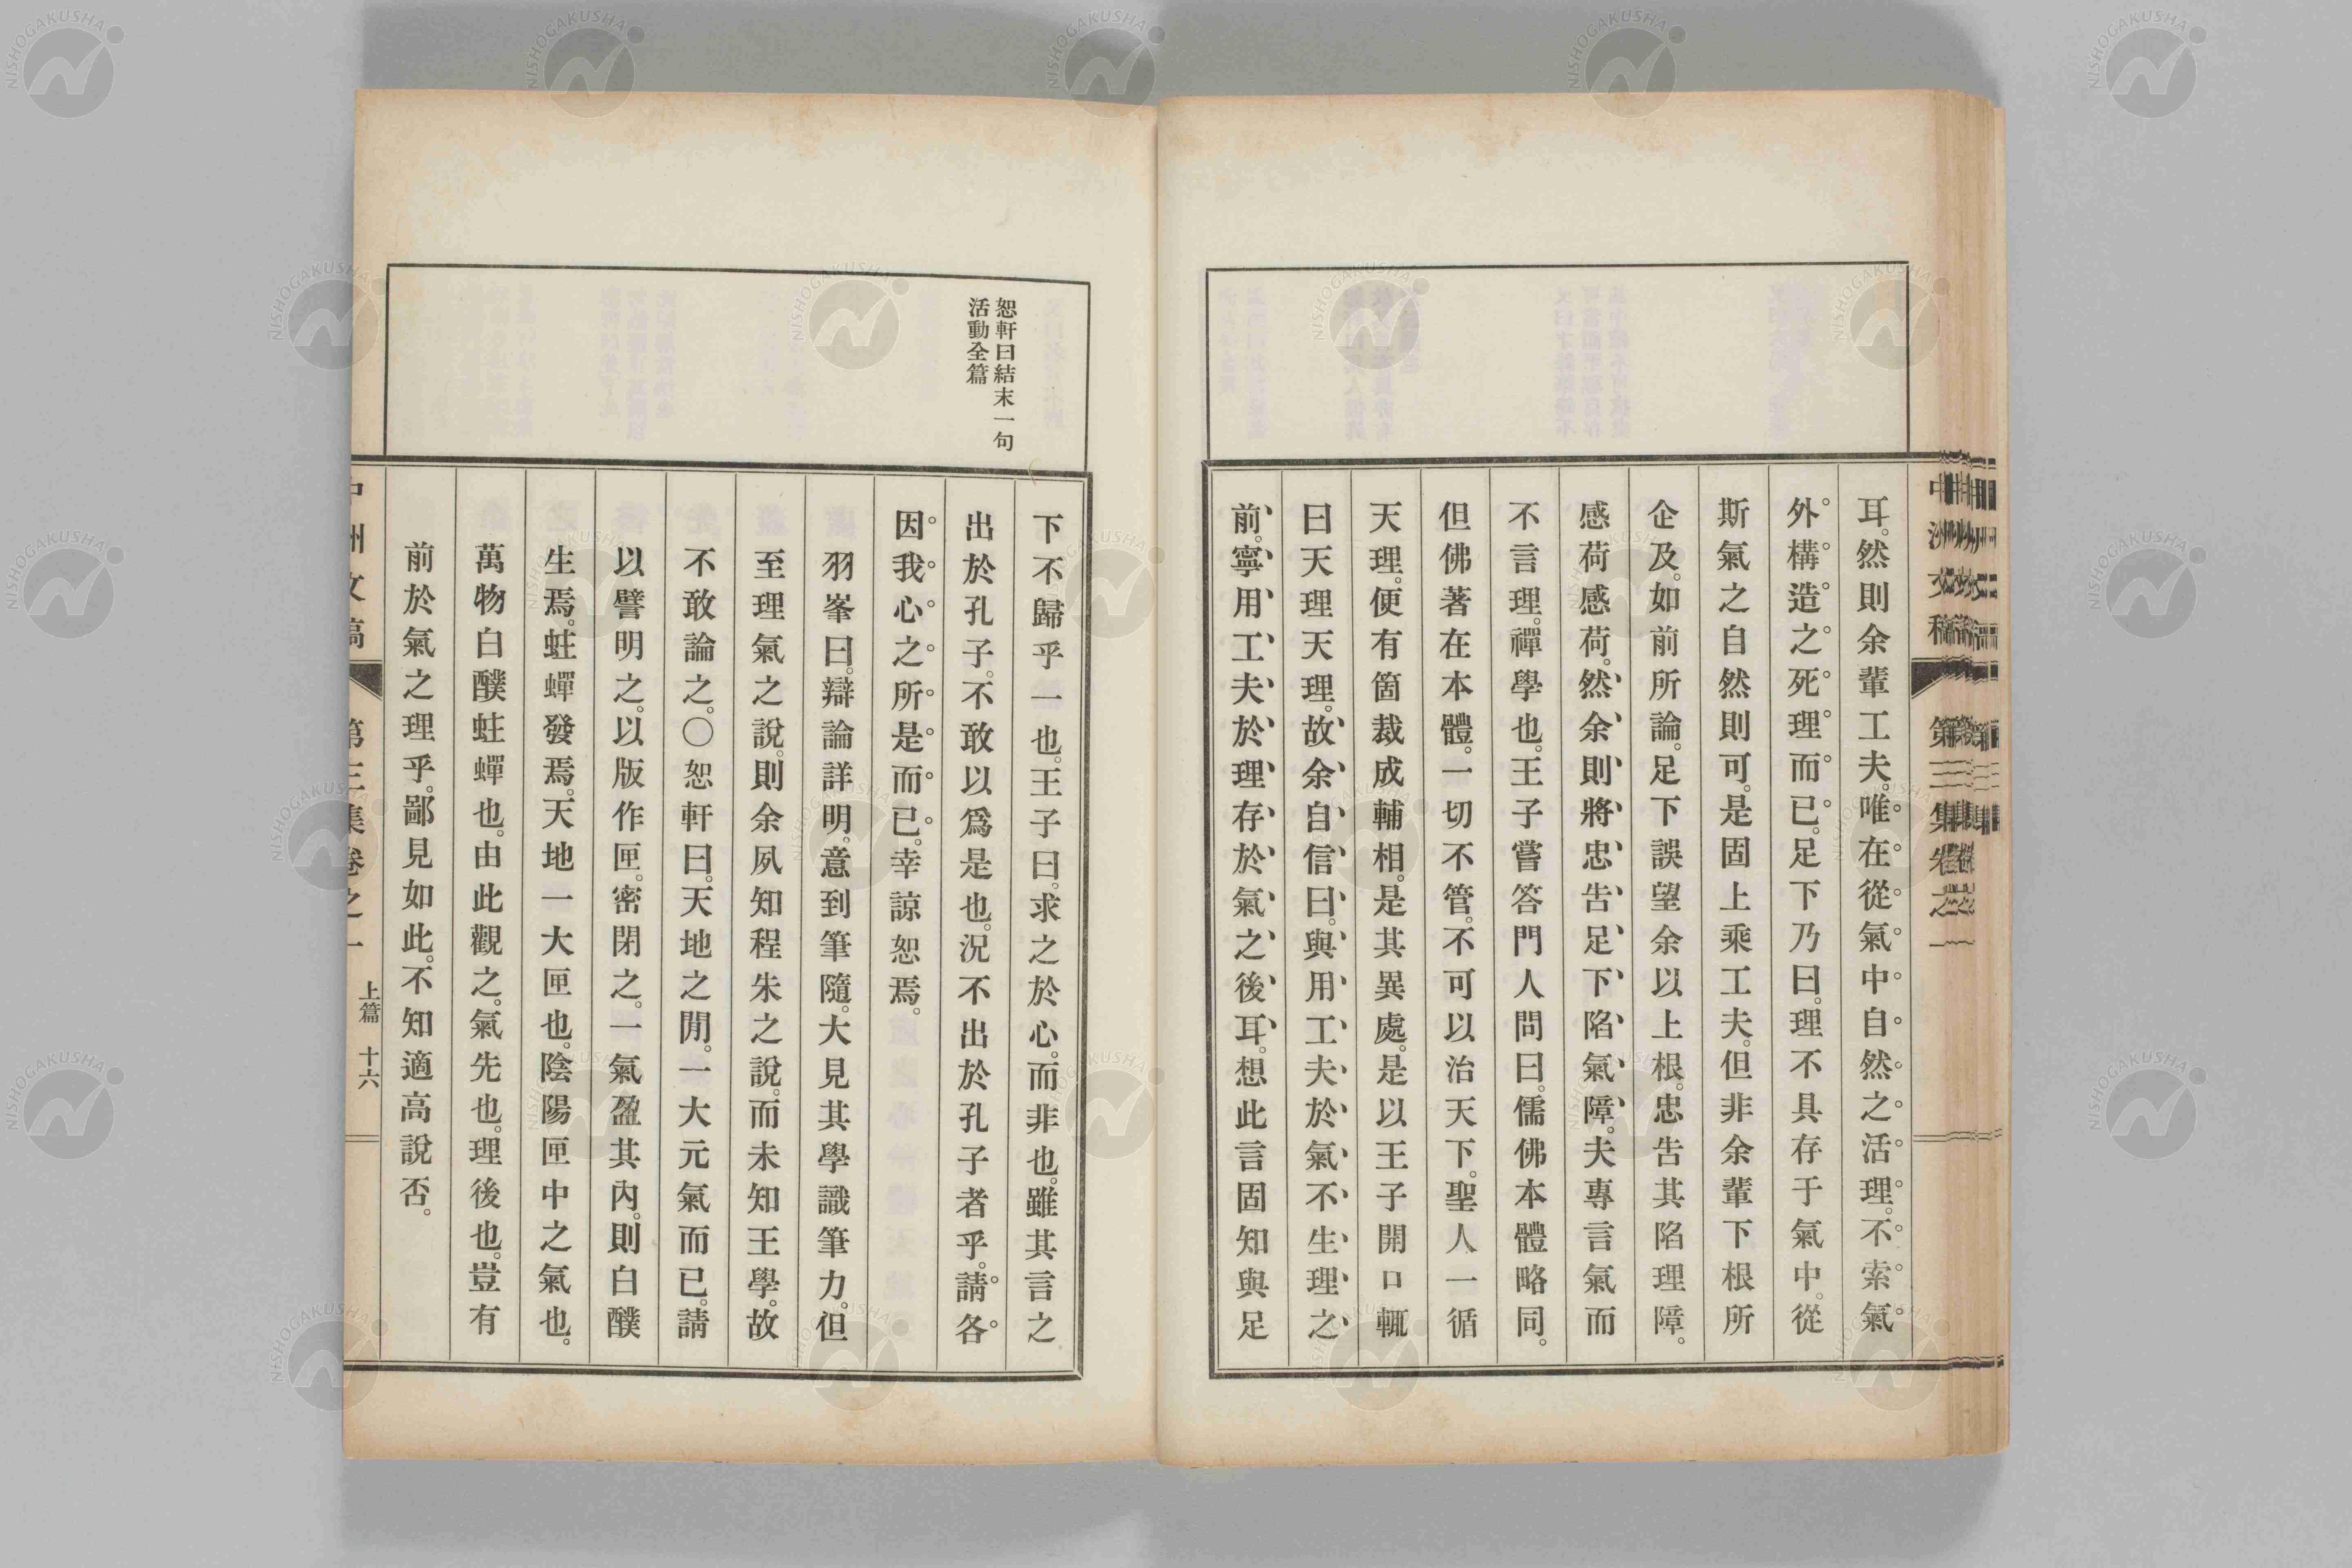 耳。然則余輩工夫。唯在從氣中自然之活理。不索氣
外構造之死理而已。足下乃曰。理不具存于氣中。從
斯氣之自然則可。是固上乘工夫。但非余輩下根所
企及。如前所論。足下誤望余以上根。忠告其陷理障。
感荷感荷。然余則將忠告足下陷氣障。夫專言氣而
不言理。禪學也。王子嘗答門人問曰。儒佛本體略同。
但佛著在本體。一切不管。不可以治天下。聖人一循
天理。便有箇裁成輔相。是其異處。是以王子開口輒
曰天理天理。故余自信曰。與用工夫於氣不生理之
前。寧用工夫於理存於氣之後耳。想此言固知與足
恕軒曰結末一句
活動全篇
下不歸乎一也。王子曰。求之於心。而非也。雖其言之
出於孔子。不敢以爲是也。況不出於孔子者乎。請各
因我心之所是而已。幸諒恕焉。
羽峯曰。辯論詳明。意到筆隨。大見其學識筆力。但
至理氣之說。則余夙知程朱之說。而未知王學。故
不敢論之。〇恕軒曰。天地之閒。一大元氣而已。請
以譬明之。以版作匣。密閉之。一氣盈其內。則白醭
生焉。蛀蟫發焉。天地一大匣也。陰陽匣中之氣也。
萬物白醭蛀蟫也。由此觀之。氣先也。理後也。豈有
前於氣之理乎。鄙見如此。不知適高說否。
中洲文稿 第三集卷之一 上篇 十六
NISHOGAKUSHA